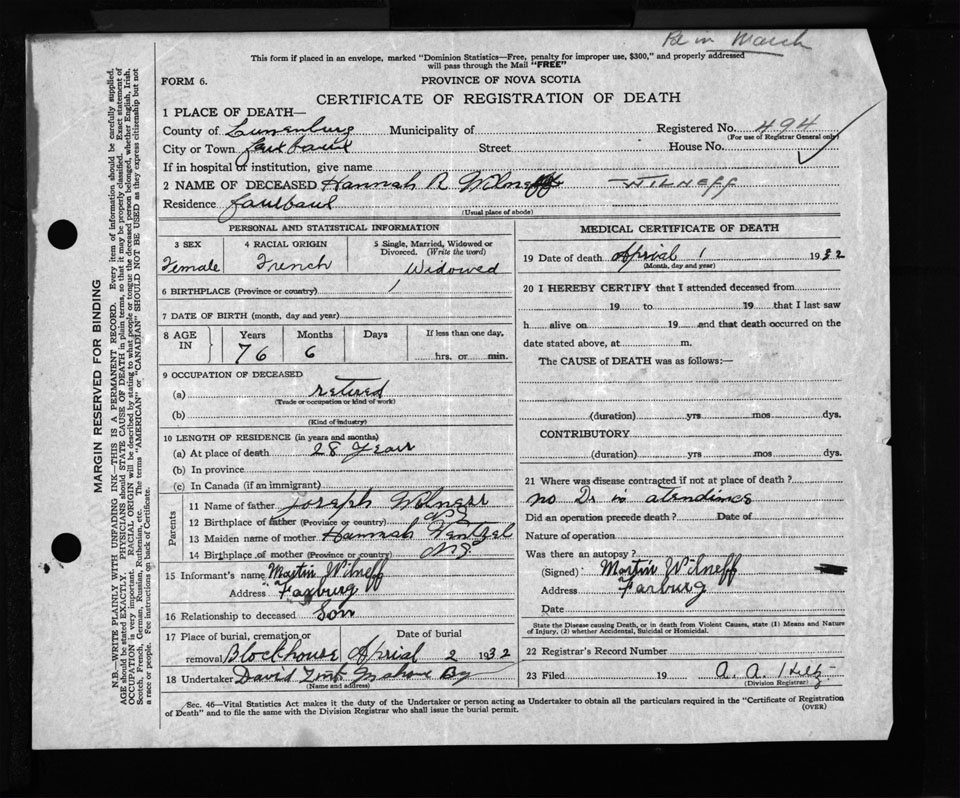 Rec in March
This form if placed in an envelope, marked "Dominion Statistics—Free, penalty for improper use, $300," and properly addressed
will pass through the Mail "FREE"
FORM 6.
PROVINCE OF NOVA SCOTIA
CERTIFICATE OF REGISTRATION OF DEATH
1 PLACE OF DEATH—
County of Lunenburg Municipality of Registered No. 494
(For use of Registrar General only)
City or Town Street House No.
If in hospital or institution, give name
2 NAME OF DECEASED Hannah R Wilneff —WILNEFF
Residence
(Usual place of abode)
PERSONAL AND STATISTICAL INFORMATION
3 SEX 4 RACIAL ORIGIN 5 Single, Married, Widowed or Divorced. (Write the word)
Female French Widowed
6 BIRTHPLACE (Province or country)
7 DATE OF BIRTH (month, day and year)
8 AGE IN Years Months Days If less than one day,
76 6 hrs. or min.
9 OCCUPATION OF DECEASED
(a) retired
(Trade or occupation or kind of work)
(b)
(Kind of industry)
10 LENGTH OF RESIDENCE (in years and months)
(a) At place of death 28 Years
(b) In province
(c) In Canada (if an immigrant)
Parents
11 Name of father Joseph Wilneff
12 Birthplace of father (Province or country) NS
13 Maiden name of mother Hannah Wentzel
14 Birthplace of mother (Province or country) N.S.
15 Informant's name Martin Wilneff
Address Faxburg
16 Relationship to deceased Son
17 Place of burial, cremation or removal Blockhouse Date of burial Aprial 2 1932
18 Undertaker David Zink Mahone Bay
(Name and address)
MEDICAL CERTIFICATE OF DEATH
19 Date of death Aprial 1 1932
(Month, day and year)
20 I HEREBY CERTIFY that I attended deceased from
19 to 19 that I last saw
h alive on 19 and that death occurred on the
date stated above, at m.
The CAUSE of DEATH was as follows:—
(duration) yrs mos dys.
CONTRIBUTORY
(duration) yrs mos dys.
21 Where was disease contracted if not at place of death?
no Dr in atendince
Did an operation precede death? Date of
Nature of operation
Was there an autopsy?
(Signed) Martin Wilneff
Address Farburg
Date
State the Disease causing Death, or in death from Violent Causes, state (1) Means and Nature
of Injury, (2) whether Accidental, Suicidal or Homicidal.
22 Registrar's Record Number
23 Filed 19 A. A. Hiltz
(Division Registrar)
Sec. 46—Vital Statistics Act makes it the duty of the Undertaker or person acting as Undertaker to obtain all the particulars required in the "Certificate of Registration
of Death" and to file the same with the Division Registrar who shall issue the burial permit.
(OVER)
MARGIN RESERVED FOR BINDING
N.B.—WRITE PLAINLY WITH UNFADING INK—THIS IS A PERMANENT RECORD. Every item of information should be carefully supplied.
AGE should be stated EXACTLY. PHYSICIANS should STATE CAUSE OF DEATH in plain terms, so that it may be properly classified. Exact statement of
OCCUPATION is very important. RACIAL ORIGIN will be described by stating to what people or tongue the deceased person belonged, whether English, Irish,
Scotch, French, German, Russian, Ruthenian, etc. The terms "AMERICAN" or "CANADIAN" SHOULD NOT BE USED as they express citizenship but not
a race or people. See instructions on back of Certificate.